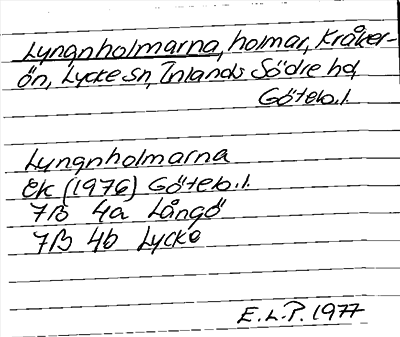 Lyngnholmarna, holmar, Kråker-
ön, Lycke sn, Inlands Södre hd,
Göteb.l.
Lyngnholmarna
Ek (1976) Göteb.l.
7B 4a Långö
7B 4b Lycke
E.L.P. 1977